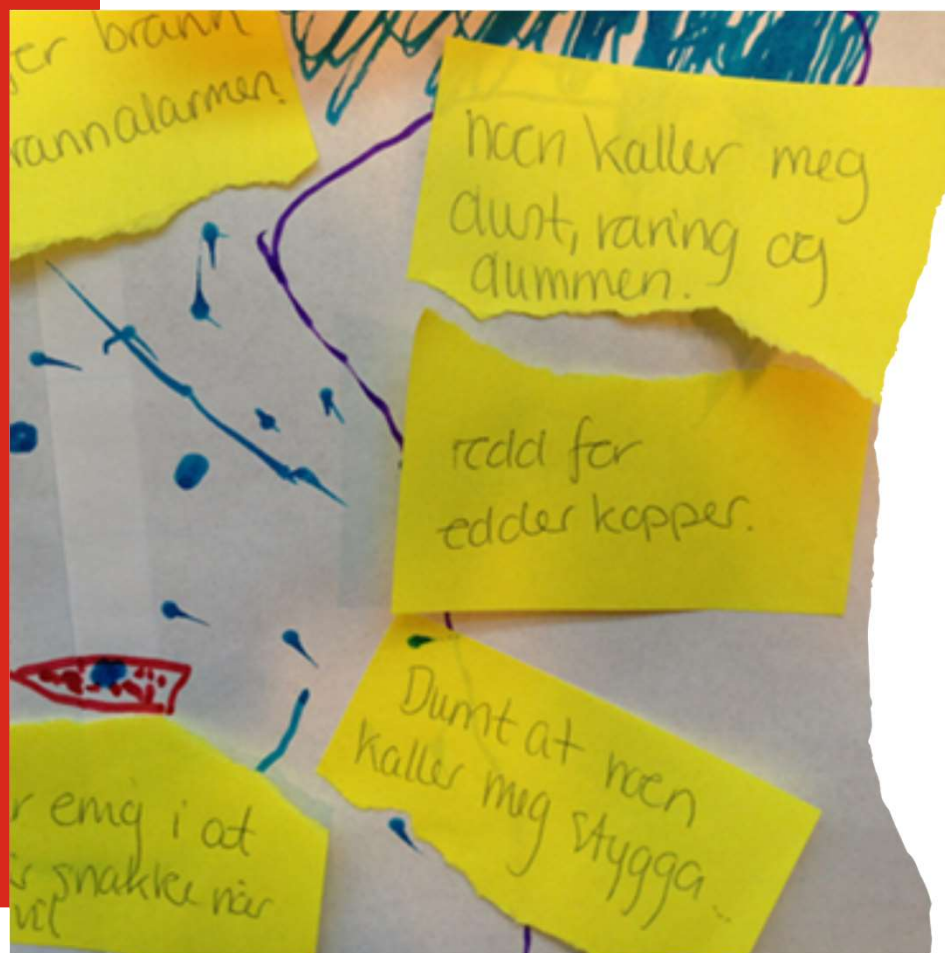 brann
rannalarmen.
noen kaller meg
dust, raring og
dummen.
redd for
edderkopper.
Dumt at noen
kaller meg stygga...
r enig i at
snakke når
vil